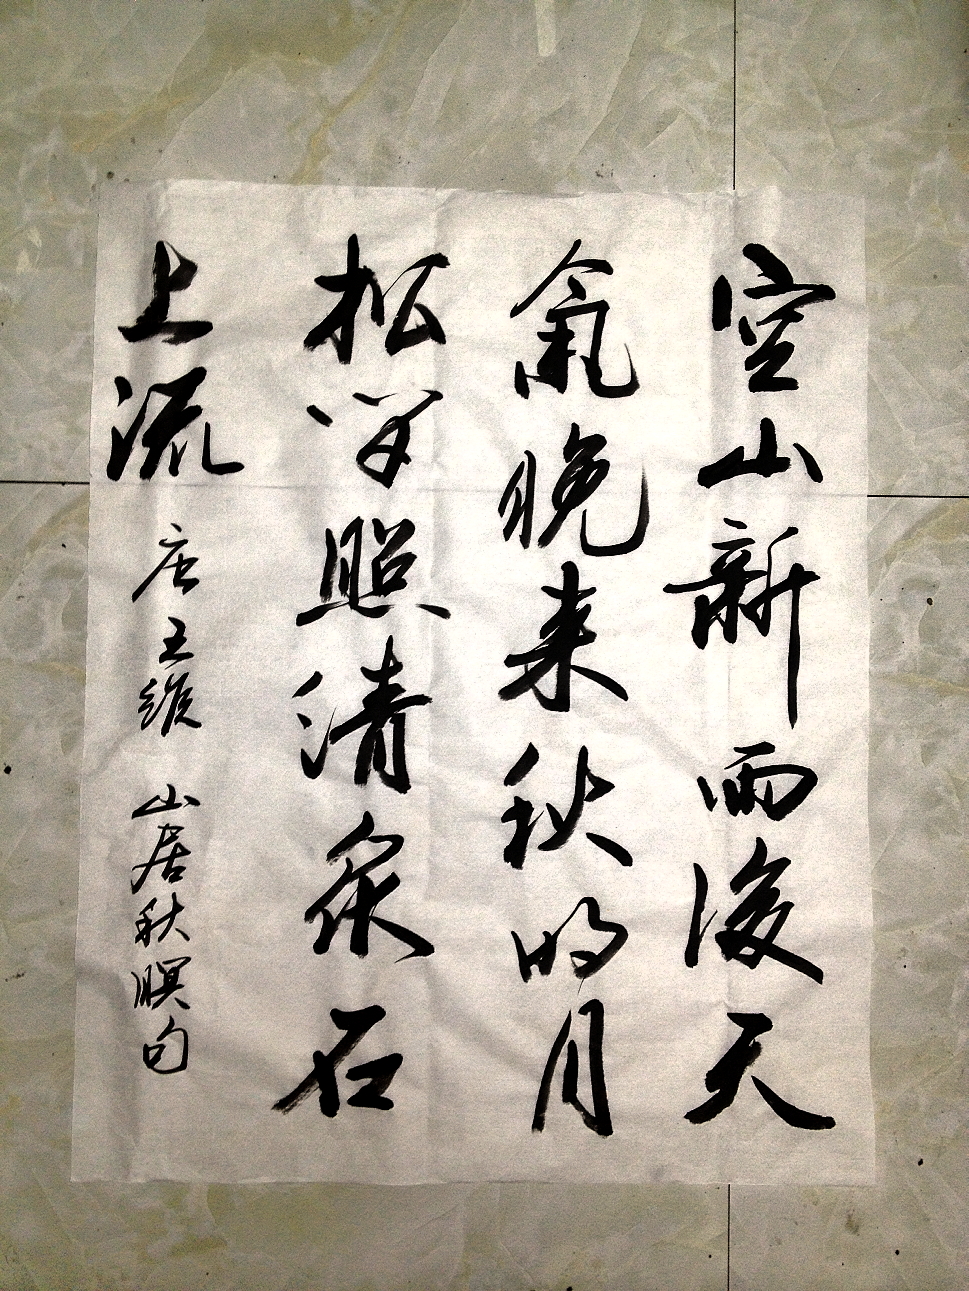 空山新雨後天
氣晚来秋明月
松间照清泉石
上流 唐王維 山居秋暝句